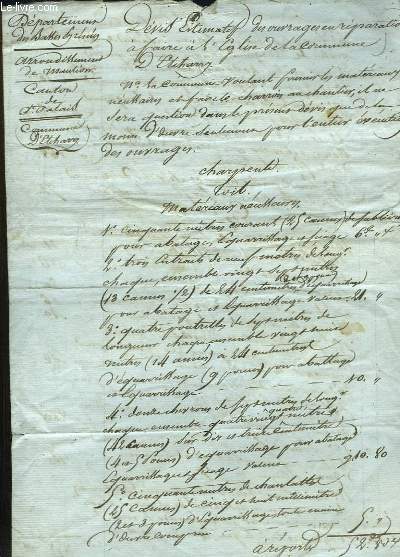 Département
des Basses Pyrénées
Arrondissement
de Mauléon
Canton
de St Palais
Commune
D'Etcharry
Dévis Estimatif des ouvrages en réparation
à faire à l'Eglise de la Commune
D'Etcharry
Na. la Commune voulant fournir les matériaux
nécessaires et faire le charroi au chantier, il ne
sera question dans le présent devis que de la
main d'œuvre seulement pour l'entier exécution
des ouvrages.
Charpente
toit
Matériaux neufs
1° Cinquante mètres courant (25 cannes) de sablière
pour abatage, équarrissage et sciage 6f "
2° trois Entraits de neuf mètres de long
chaque, ensemble vingt sept mètres
(13 cannes 1/2) de 24 centimètres d'équarrissage
pour abatage et équarrissage valeur 21. "
3° quatre poutrelles de sept mètres de
longueur chaque ensemble vingt huit
mètres (14 cannes) à 24 centimètres
d'équarrissage (9 pouces) pour abattage
et équarrissage 10. "
4° douze chevrons de sept mètres de long
chaque ensemble quatre vingt quatre mètres
(42 cannes) sur dix et treize centimètres
(4 et 5 pouces) d'équarrissage pour abatage
équarrissage et sciage valeur 90. 80
5° cinquante mètres de
(25 cannes) de cinq et huit centimètres
(2 et 3 pouces) d'équarrissage
d'œuvre comprise
à reporter